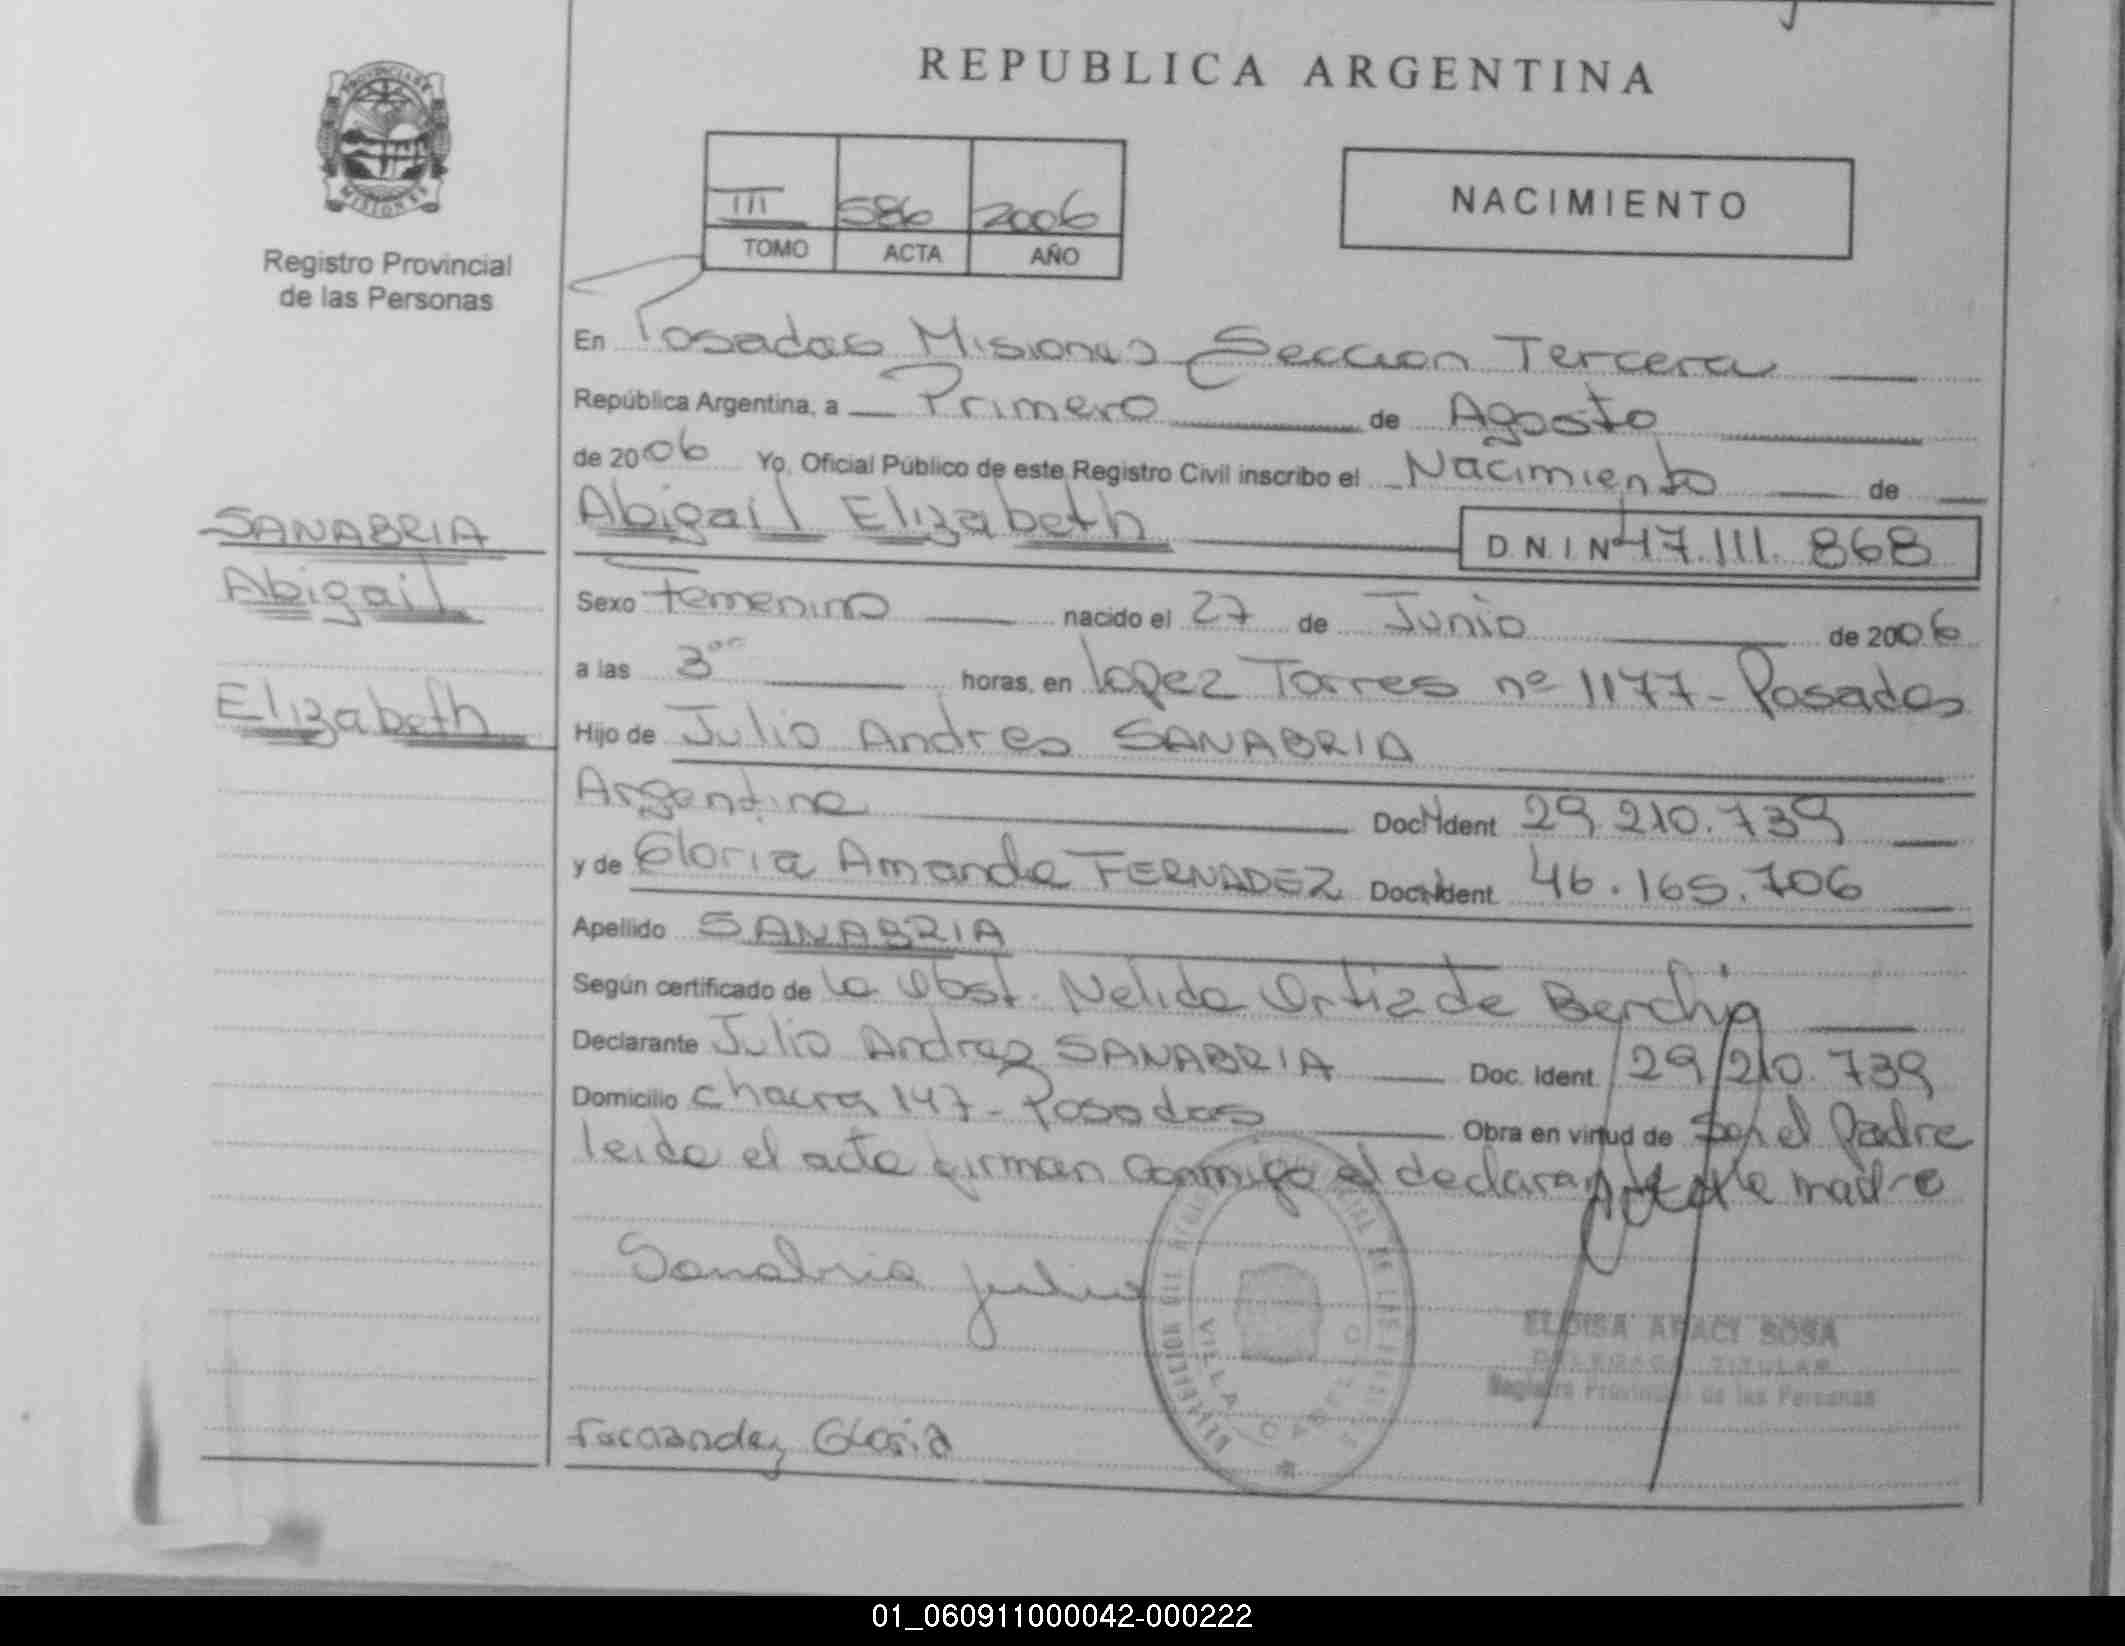 REPUBLICA ARGENTINA
PROVINCIA DE
MISIONES
Registro Provincial
de las Personas
III 586 2006
TOMO ACTA AÑO
NACIMIENTO
En Posadas Misiones Seccion Tercera
República Argentina, a Primero de Agosto
de 2006 Yo, Oficial Público de este Registro Civil inscribo el Nacimiento de
Abigail Elizabeth D.N.I Nº 47.111.868
SANABRIA
Abigail
Elizabeth
Sexo Femenino nacido el 27 de Junio de 2006
a las 3ºº horas, en Lopez Torres nº 1177 - Posadas
Hijo de Julio Andres SANABRIA
Argentino Doc. Ident 29.210.739
y de Gloria Amanda FERNADEZ Doc. Ident. 46.165.706
Apellido SANABRIA
Según certificado de la Obst. Nelida Ortiz de
Declarante Julio Andrez SANABRIA Doc. Ident. 29.210.739
Domicilio Chacra 147 - Posadas Obra en virtud de Ser el Padre
leida el acta firman conmigo el declarante y la madre
Sanabria Julio
VILLA CABELLO
ELOISA ARACI SOSA
DELEGADA TITULAR
Registro Provincial de las Personas
Fernandez Gloria
01_060911000042-000222